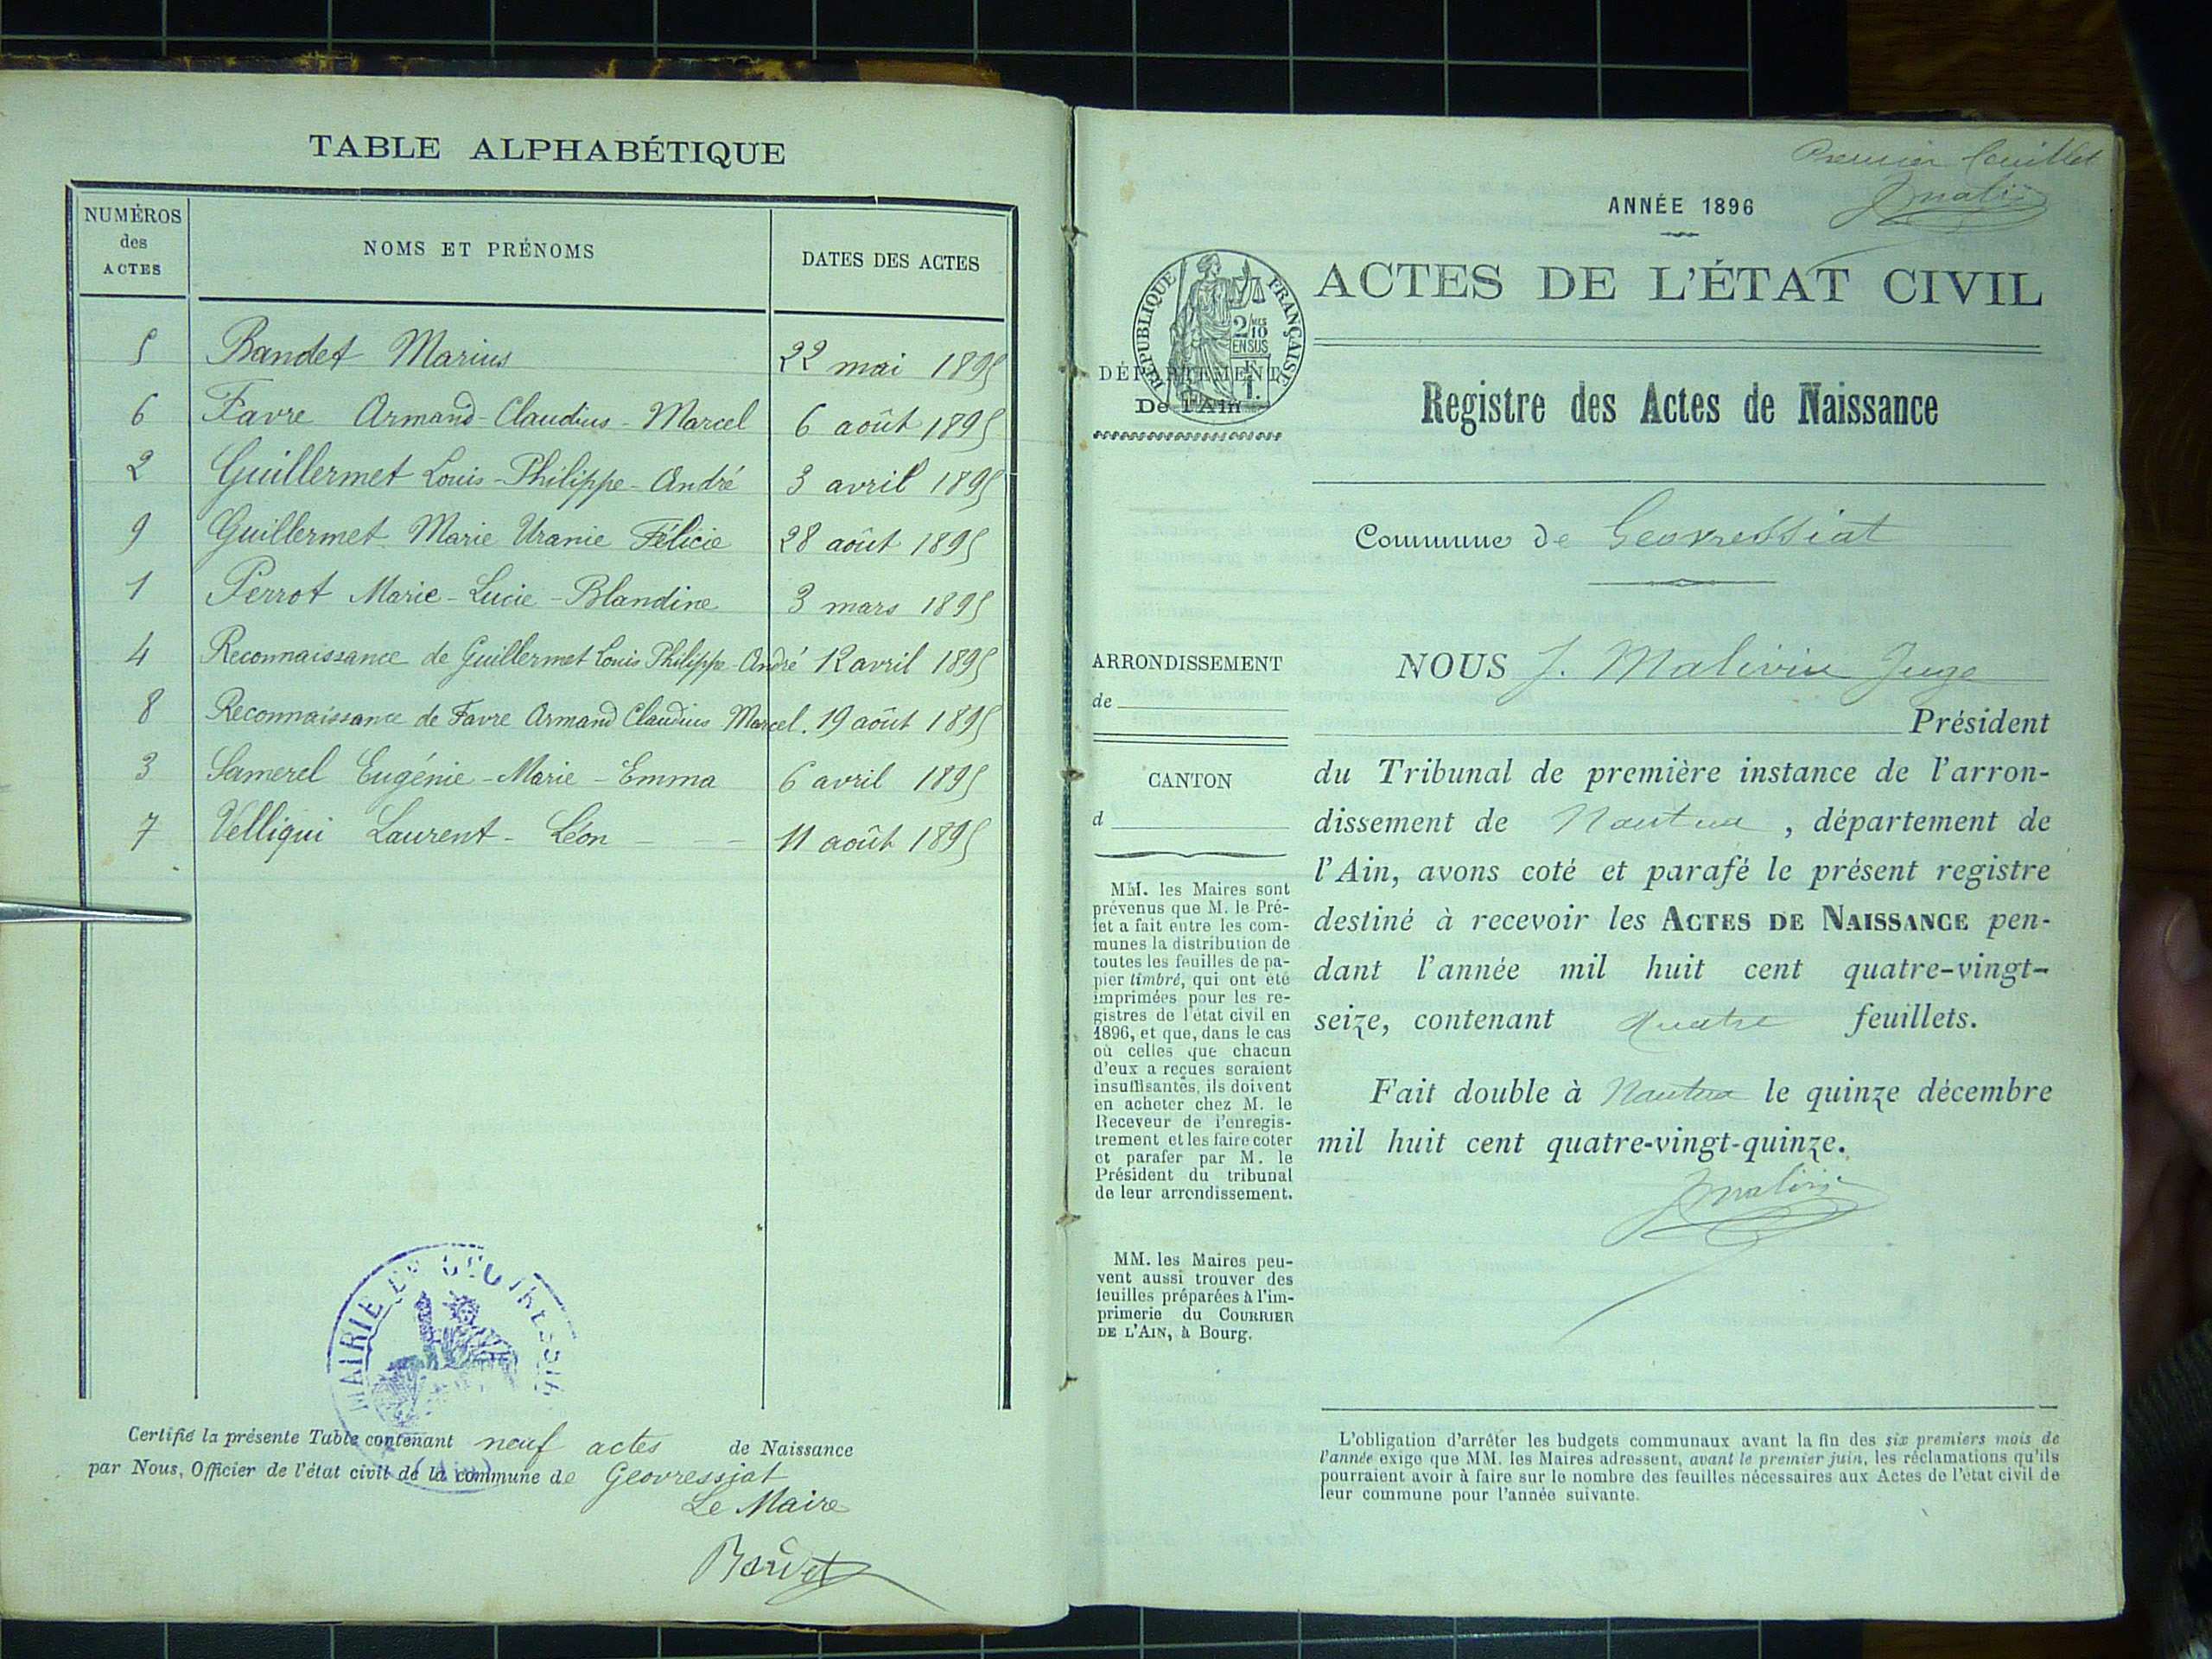 TABLE ALPHABÉTIQUE
NUMÉROS
des
ACTES
NOMS ET PRÉNOMS
DATES DES ACTES
5 Bandet Marius 22 mai 1895
6 Favre Armand-Claudius-Marcel 6 août 1895
2 Guillermet Louis-Philippe-André 3 avril 1895
9 Guillermet Marie Uranie Félicie 28 août 1895
1 Perrot Marie-Lucie-Blandine 3 mars 1895
4 Reconnaissance de Guillermet Louis Philippe-André 12 avril 1895
8 Reconnaissance de Favre Armand Claudius Marcel. 19 août 1895
3 Samerel Eugénie-Marie-Emma 6 avril 1895
7 Velliqui Laurent-Léon - - - 11 août 1895
MAIRIE DE
(Ain)
Certifié la présente Table contenant neuf actes de Naissance
par Nous, Officier de l'état civil de la commune de Geovressiat
Le Maire
Premier feuillet
ANNÉE 1896
RÉPUBLIQUE FRANÇAISE
2/10
EN SUS
ACTES DE L'ÉTAT CIVIL
DÉPARTEMENT
De l'Ain
Registre des Actes de Naissance
Commune de Geovressiat
ARRONDISSEMENT
de
CANTON
d
MM. les Maires sont
prévenus que M. le Pré-
fet a fait entre les com-
munes la distribution de
toutes les feuilles de pa-
pier timbré, qui ont été
imprimées pour les re-
gistres de l'état civil en
1896, et que, dans le cas
où celles que chacun
d'eux a reçues seraient
insuffisantes, ils doivent
en acheter chez M. le
Receveur de l'enregis-
trement et les faire coter
et parafer par M. le
Président du tribunal
de leur arrondissement.
MM. les Maires peu-
vent aussi trouver des
feuilles préparées à l'im-
primerie du COURRIER
DE L'AIN, à Bourg.
NOUS J. Malivin Juge
Président
du Tribunal de première instance de l'arron-
dissement de Nantua, département de
l'Ain, avons coté et parafé le présent registre
destiné à recevoir les ACTES DE NAISSANCE pen-
dant l'année mil huit cent quatre-vingt-
seize, contenant quatre feuillets.
Fait double à Nantua le quinze décembre
mil huit cent quatre-vingt-quinze.
L'obligation d'arrêter les budgets communaux avant la fin des six premiers mois de
l'année exige que MM. les Maires adressent, avant le premier juin, les réclamations qu'ils
pourraient avoir à faire sur le nombre des feuilles nécessaires aux Actes de l'état civil de
leur commune pour l'année suivante.